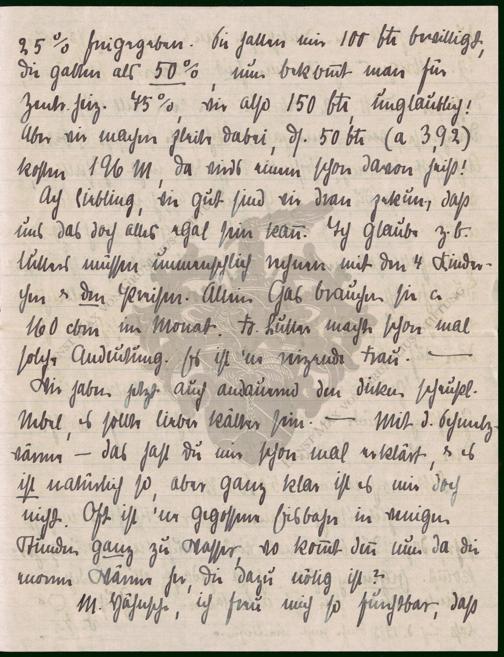 25% freigegeben. Sie hatten mir 100 Ztr bewilligt,
die galten als 50%, nun bekommt man für
Zentr. heiz. 75%, wir also 150 Ztr, unglaublich!
Aber wir machen pleite dabei, d.h. 50 Ztr (a 3,92)
kosten 196 M, da wirds einem schon davon heiß!
Ach Liebling, wie gut sind wir dran, daß
uns das doch alles egal sein kann. Ich glaube z.b.
Lutters müssen unmenschlich rechnen mit den 4 Kinder-
chen & den Preisen. Allein Gas brauchen sie ca
160 cbm im Monat. Fr. Lutter machte schon mal
solche Andeutung. Es ist 'ne reizende Frau. —
Wir haben jetzt auch andauernd den dicken scheußl.
Nebel, es sollte lieber kälter sein. — Mit d. Schmelz-
wärme — das hast du mir schon mal erklärt, & es
ist natürlich so, aber ganz klar ist es mir doch
nicht. Oft ist 'ne gegossene Eisbahn in wenigen
Stunden ganz zu Wasser, wo kommt denn nun da die
enorme Wärme her, die dazu nötig ist?
M. ich freu mich so furchtbar, daß